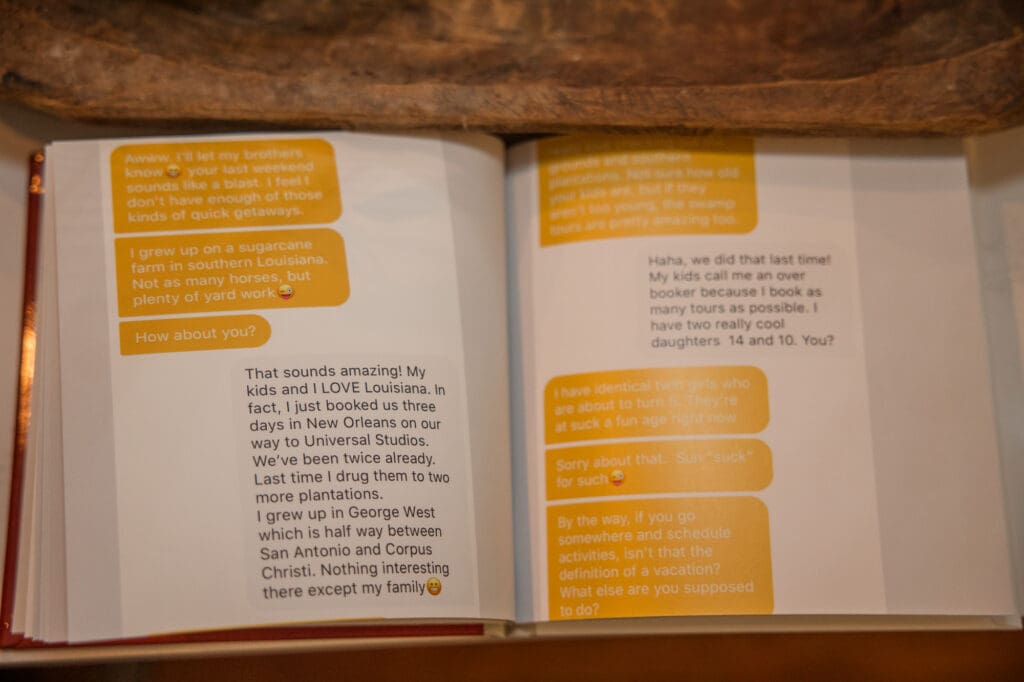 Awww, I'll let my brothers
know😜 your last weekend
sounds like a blast. I feel I
don't have enough of those
kinds of quick getaways.
I grew up on a sugarcane
farm in southern Louisiana.
Not as many horses, but
plenty of yard work😜
How about you?
That sounds amazing! My
kids and I LOVE Louisiana. In
fact, I just booked us three
days in New Orleans on our
way to Universal Studios.
We've been twice already.
Last time I drug them to two
more plantations.
I grew up in George West
which is half way between
San Antonio and Corpus
Christi. Nothing interesting
there except my family😁
grounds and southern
plantations. Not sure how old
your kids are, but if they
aren't too young, the swamp
tours are pretty amazing too.
Haha, we did that last time!
My kids call me an over
booker because I book as
many tours as possible. I
have two really cool
daughters 14 and 10. You?
I have identical twin girls who
are about to turn 5. They're
at suck a fun age right now
Sorry about that. Sun "suck"
for such😜
By the way, if you go
somewhere and schedule
activities, isn't that the
definition of a vacation?
What else are you supposed
to do?